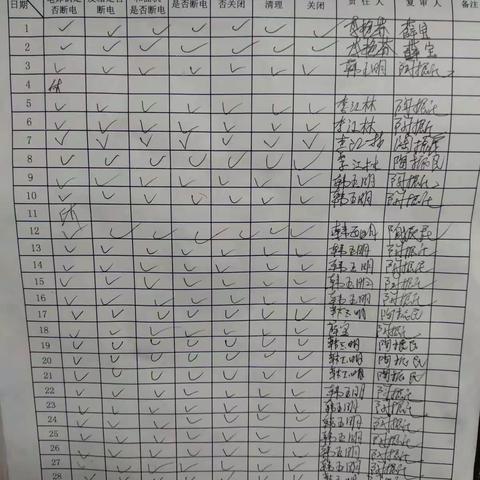 日期 是否断电 是否断电 是否断电 是否断电 否关闭 清理 关闭 责任人 复审人 备注
1 ✓ ✓ ✓ ✓ ✓ ✓ ✓
2 ✓ ✓ ✓ ✓ ✓ ✓ ✓
3 ✓ ✓ ✓ ✓ ✓ ✓ ✓ 韩玉明 陶振民
4 休
5 ✓ ✓ ✓ ✓ ✓ ✓ ✓ 李江林 陶振民
6 ✓ ✓ ✓ ✓ ✓ ✓ ✓ 李江林 陶振民
7 ✓ ✓ ✓ ✓ ✓ ✓ ✓ 李江林 陶振民
8 ✓ ✓ ✓ ✓ ✓ ✓ ✓ 李江林 陶振民
9 ✓ ✓ ✓ ✓ ✓ ✓ ✓ 韩玉明 陶振民
10 ✓ ✓ ✓ ✓ ✓ ✓ ✓ 韩玉明 陶振民
11 休
12 ✓ ✓ ✓ ✓ ✓ ✓ ✓ 韩玉明 陶振民
13 ✓ ✓ ✓ ✓ ✓ ✓ ✓ 韩玉明 陶振民
14 ✓ ✓ ✓ ✓ ✓ ✓ ✓ 韩玉明 陶振民
15 ✓ ✓ ✓ ✓ ✓ ✓ ✓ 韩玉明 陶振民
16 ✓ ✓ ✓ ✓ ✓ ✓ ✓ 韩玉明 陶振民
17 ✓ ✓ ✓ ✓ ✓ ✓ ✓ 韩玉明 陶振民
18 ✓ ✓ ✓ ✓ ✓ ✓ ✓ 陶振民
19 ✓ ✓ ✓ ✓ ✓ ✓ ✓ 韩玉明 陶振民
20 ✓ ✓ ✓ ✓ ✓ ✓ ✓ 韩玉明 陶振民
21 ✓ ✓ ✓ ✓ ✓ ✓ ✓ 韩玉明 陶振民
22 ✓ ✓ ✓ ✓ ✓ ✓ ✓ 韩玉明 陶振民
23 ✓ ✓ ✓ ✓ ✓ ✓ ✓ 韩玉明 陶振民
24 ✓ ✓ ✓ ✓ ✓ ✓ ✓ 韩玉明 陶振民
25 ✓ ✓ ✓ ✓ ✓ ✓ ✓ 韩玉明 陶振民
26 ✓ ✓ ✓ ✓ ✓ ✓ ✓ 韩玉明 陶振民
27 ✓ ✓ ✓ ✓ ✓ ✓ ✓ 韩玉明 陶振民
28 ✓ ✓ ✓ ✓ ✓ ✓ ✓ 韩玉明 陶振民